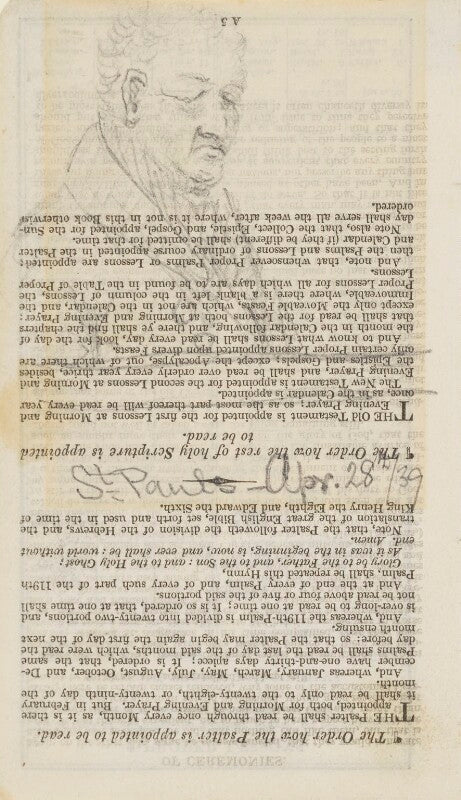 ¶ The Order how the Psalter is appointed to be read.
THE Psalter shall be read through once every Month, as it is there
appointed, both for Morning and Evening Prayer. But in February
it shall be read only to the twenty-eighth, or twenty-ninth day of the
month.
And, whereas January, March, May, July, August, October, and De-
cember have one-and-thirty days apiece; It is ordered, that the same
Psalms shall be read the last day of the said months, which were read the
day before: so that the Psalter may begin again the first day of the next
month ensuing.
And, whereas the 119th Psalm is divided into twenty-two portions, and
is over-long to be read at one time; It is so ordered, that at one time shall
not be read above four or five of the said portions.
And at the end of every Psalm, and of every such part of the 119th
Psalm, shall be repeated this Hymn,
Glory be to the Father, and to the Son: and to the Holy Ghost;
As it was in the beginning, is now, and ever shall be: world without
end. Amen.
Note, that the Psalter followeth the division of the Hebrews, and the
translation of the great English Bible, set forth and used in the time of
King Henry the Eighth, and Edward the Sixth.
St Pauls - Apr. 28th/39
¶ The Order how the rest of holy Scripture is appointed
to be read.
THE Old Testament is appointed for the first Lessons at Morning and
Evening Prayer; so as the most part thereof will be read every year
once, as in the Calendar is appointed.
The New Testament is appointed for the second Lessons at Morning and
Evening Prayer, and shall be read over orderly every year thrice, besides
the Epistles and Gospels; except the Apocalypse, out of which there are
only certain Proper Lessons appointed upon divers Feasts.
And to know what Lessons shall be read every day, look for the day of
the month in the Calendar following, and there ye shall find the chapters
that shall be read for the Lessons both at Morning and Evening Prayer;
except only the Moveable Feasts, which are not in the Calendar, and the
Immoveable, where there is a blank left in the column of Lessons, the
Proper Lessons for all which days are to be found in the Table of Proper
Lessons.
And note, that whensoever Proper Psalms or Lessons are appointed;
then the Psalms and Lessons of ordinary course appointed in the Psalter
and Calendar (if they be different) shall be omitted for that time.
Note also, that the Collect, Epistle, and Gospel, appointed for the Sun-
day shall serve all the week after, where it is not in this Book otherwise
ordered.
A 3